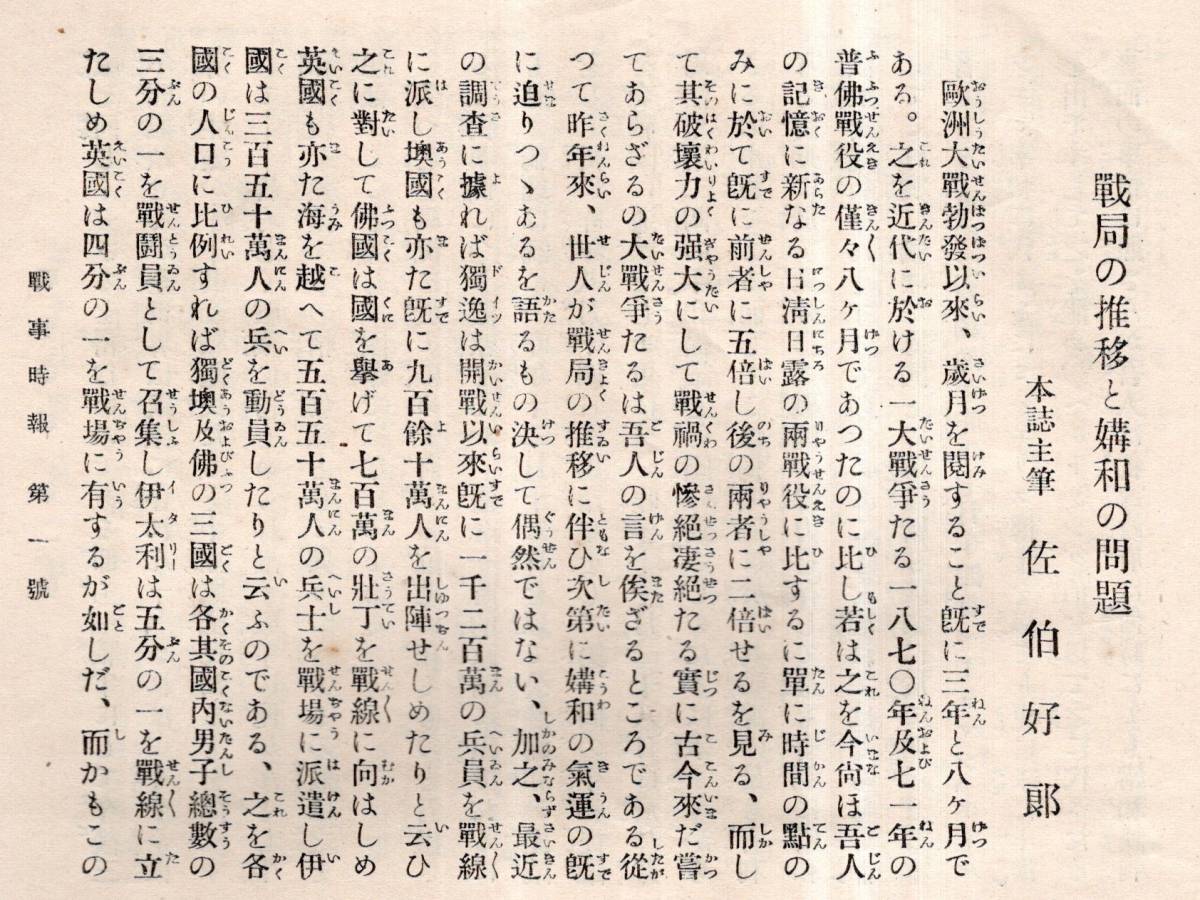 戰局の推移と媾和の問題
本誌主筆 佐伯好郞
歐洲大戰勃發以來、歲月を閱すること旣に三年と八ヶ月で
ある。之を近代に於ける一大戰爭たる一八七〇年及七一年の
普佛戰役の僅々八ヶ月であつたのに比し若は之を今尙ほ吾人
の記憶に新なる日淸日露の兩戰役に比するに單に時間の點の
みに於て旣に前者に五倍し後の兩者に二倍せるを見る、而し
て其破壞力の强大にして戰禍の慘絕凄絕たる實に古今來だ嘗
てあらざるの大戰爭たるは吾人の言を俟ざるところである從
つて昨年來、世人が戰局の推移に伴ひ次第に媾和の氣運の旣
に迫りつゝあるを語るもの決して偶然ではない、加之、最近
の調査に據れば獨逸は開戰以來旣に一千二百萬の兵員を戰線
に派し墺國も亦た旣に九百餘十萬人を出陣せしめたりと云ひ
之に對して佛國は國を擧げて七百萬の壯丁を戰線に向はしめ
英國も亦た海を越へて五百五十萬人の兵士を戰場に派遣し伊
國は三百五十萬人の兵を動員したりと云ふのである、之を各
國の人口に比例すれば獨墺及佛の三國は各其國內男子總數の
三分の一を戰鬪員として召集し伊太利は五分の一を戰線に立
たしめ英國は四分の一を戰場に有するが如しだ、而かもこの
戰事時報第一號